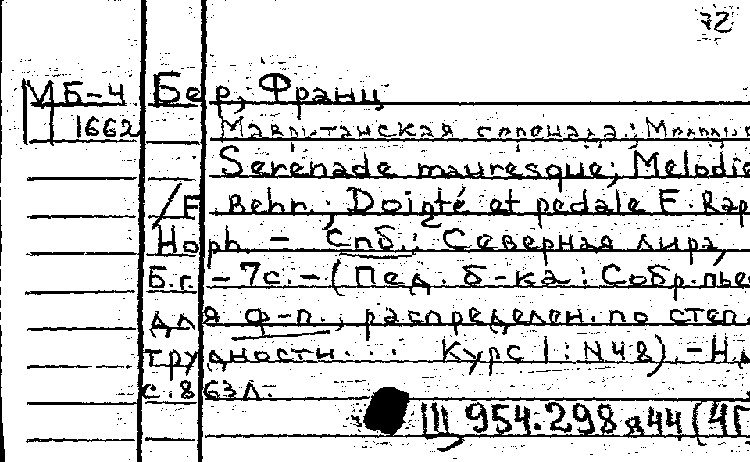 72
МБ-4 Бер, Франц
1662 Мавританская серенада;
Serenade mauresque; Melodie
/F. Behr.; Doigté et pedale E. Rap
Hoph. - Спб.: Северная лира,
Б.г. - 7с. - (Пед. б-ка: Собр. пьес
для ф-п., распределен. по степ.
трудности... Курс I: N48). - Н.д.
с. 863л.
Щ 954.298 я44 (4Г